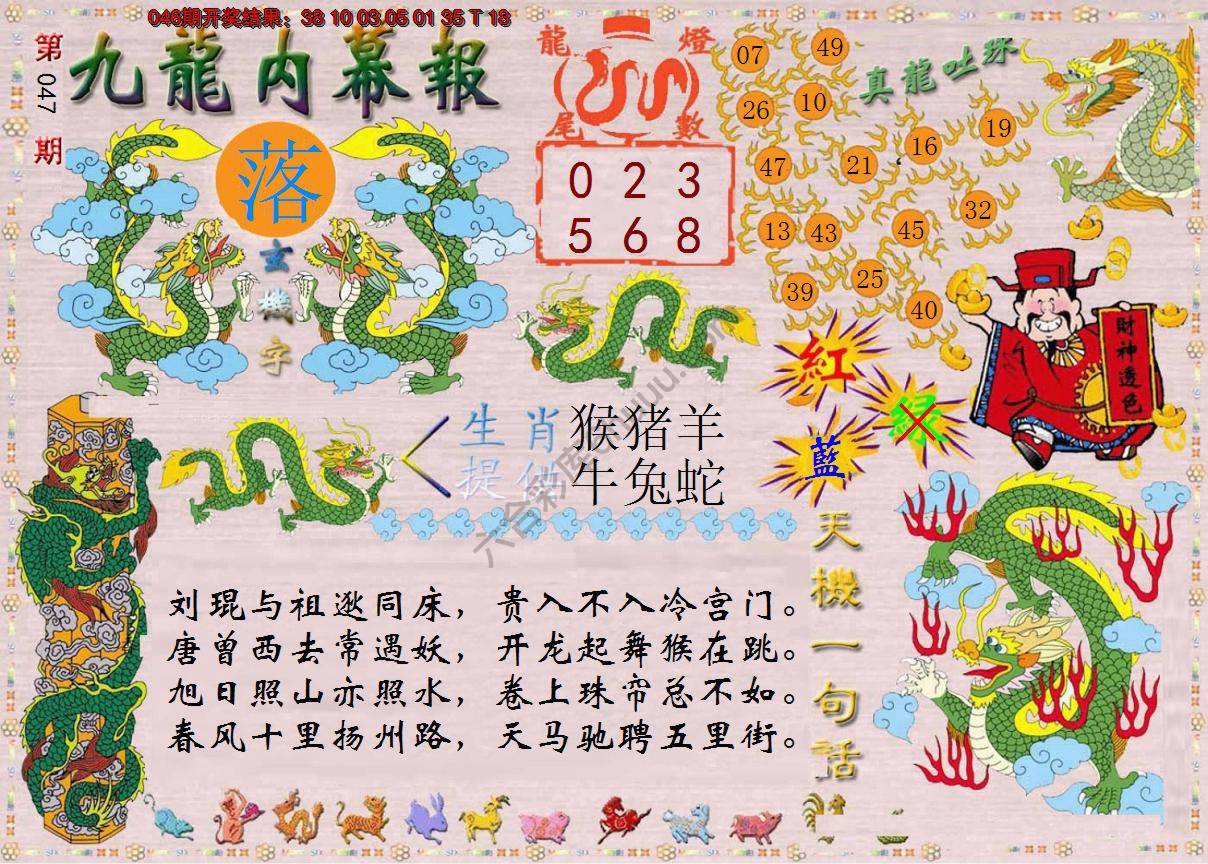 046期开奖结果：38 10 03 05 01 35 T 18
第047期
九龍内幕報
落
玄機字
龍燈
尾數
0 2 3
5 6 8
真龍吐珠
07 49
26 10
47 21 16 19
13 43 45 32
39 25 40
財神透色
紅
绿
藍
生肖 猴猪羊
提供 牛兔蛇
六合彩库
天機一句話
刘琨与祖逖同床，贵入不入冷宫门。
唐曾西去常遇妖，开龙起舞猴在跳。
旭日照山亦照水，卷上珠帘总不如。
春风十里扬州路，天马驰聘五里街。